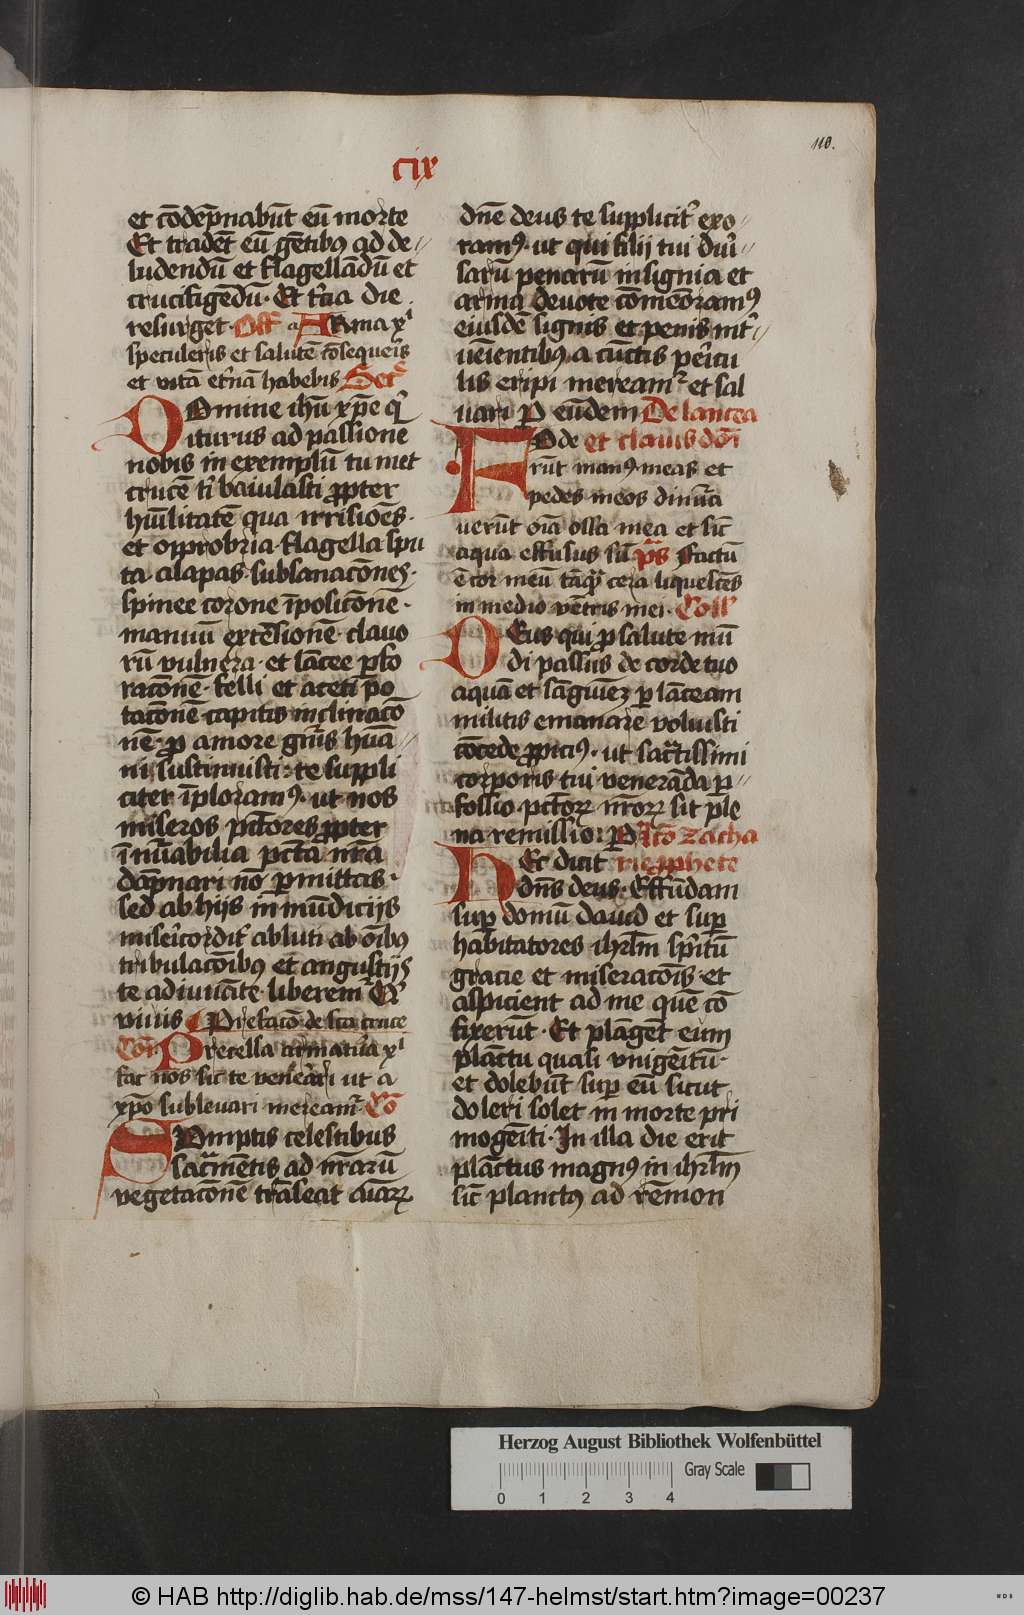 cix
110.
et cōdēpnabūt eū morte
Et tradēt eū gētibꝰ ad de⸗
ludendū et flagellādū et
crucifigēdū· Et t̄cia die
resurget· Off̄ a ARma xͥ
speculeris et salutē cōsequeris
et vitā et̉nā habebis Secr̄
DOmine ihū xp̄e qͥ
iturus ad passione
nobis in exemplū tu met
crucē t̉ baiulasti ꝓpter
hūilitatē qua irrisiōes·
et opprobria· flagella spu
ta· alapas· subsanacōnes·
spinee corone īposicōnē·
manuū extēsionē· clauo
rū vulnera· et lācee ꝑfo
racōnē· felli et aceti po
tacōnē capitis inclinacō
nē· ꝓ amore gn̄is hūa⸗
ni sustinuisti· te suppli
citer īploramꝰ· ut nos
miseros pctōres ꝓpter
īnūabilia pctā nr̄a
dāpnari nō ꝑmittas·
sed ab hijs inmūdicijs
misẻicordit̉ abluti ab oībꝰ
tribulacōibꝰ et angustijs
te adiuuāte liberem̄ Qͥ
viuis Prefacō de scā cruce
Cōn Precella armatu̇a xͥ
fac nos sic te venẻari ut a
xp̄o subleuari meream̉ Cō
SUmptis celestibus
sac̉mētis ad nr̄arū
vegetacōnē trāseat aīarꝝ
dn̄e deus te supplicit̉ exo⸗
ramꝰ· ut qui filij tui diu̇⸗
sarū penarū insignia et
arma deuote cōmēoramꝰ
eiusdē signis et penis int̉⸗
ueīentibꝰ a cūctis pẻicu
lis eripi meream̉ et sal
uari ꝑ eūdem De lancea
FOde et clauis dn̄i
rūt manꝰ meas et
pedes meos dinūa
uerūt oīa ossa mea et sic̄
aqua effusus sū p̄s Factū
ē cor meū tāqͣ cera liquescēs
in medio vētris mei· Coll̄
DEus qui ꝓ salute mū
di passus de corde tuo
aquā et sāguīeꝫ ꝑ lāceam
militis emanare voluisti
cōcede ꝓpiciꝰ· ut sac̉tissimi
corporis tui venerāda ꝑ⸗
fossio· pctōrꝝ nr̄orꝝ sit ple
na remissio: Ꝑ Lc̄o zacha
HEc dicit rie ꝓphete
dn̄s deus· Effūdam
suꝑ domū dauid et suꝑ
habitatores ihrlm̄ sp̄itū
gracie et miseracōis· et
aspicient ad me quē cō
fixerūt· Et plāgēt eum
plāctu quasi vnigēitū·
et dolebūt suꝑ eū sicut
doleri solet in morte pri
mogēiti· In illa die erit
plāctus magnꝰ in ihrlm̄
sic̄ planctꝰ ad rēmon
Herzog August Bibliothek Wolfenbüttel
Gray Scale
0 1 2 3 4
© HAB http://diglib.hab.de/mss/147-helmst/start.htm?image=00237